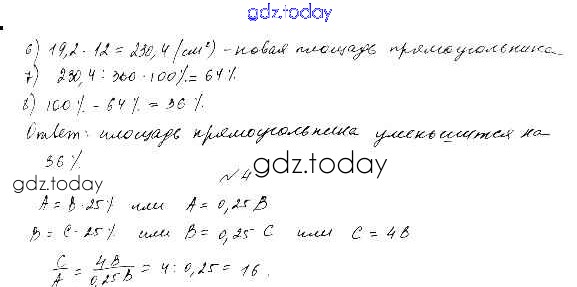 gdz.today
6) 19,2 · 12 = 230,4 (см²) - новая площадь прямоугольника.
7) 230,4 : 360 · 100% = 64%
8) 100% - 64% = 36%.
Ответ: площадь прямоугольника уменьшится на
36%.
gdz.today
№4
gdz.today
A = B · 25% или A = 0,25 B
B = C · 25% или B = 0,25 C или C = 4B
C/A = 4B/0,25B = 4 : 0,25 = 16.